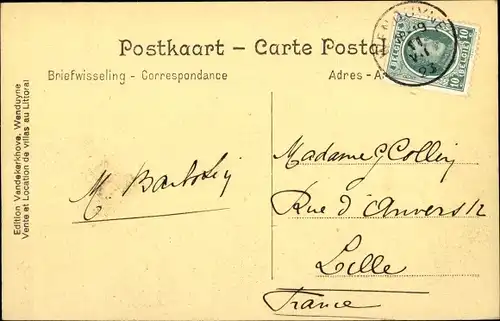 Postkaart - Carte Postal
Briefwisseling - Correspondance
Adres - A
BELGIE BELGIQUE
10 10
Edition Vandekerkhove, Wenduyne
Vente et Location de villas au Littoral
Madame G Collin
M. 
Rue d'Anvers 12
Lille
France